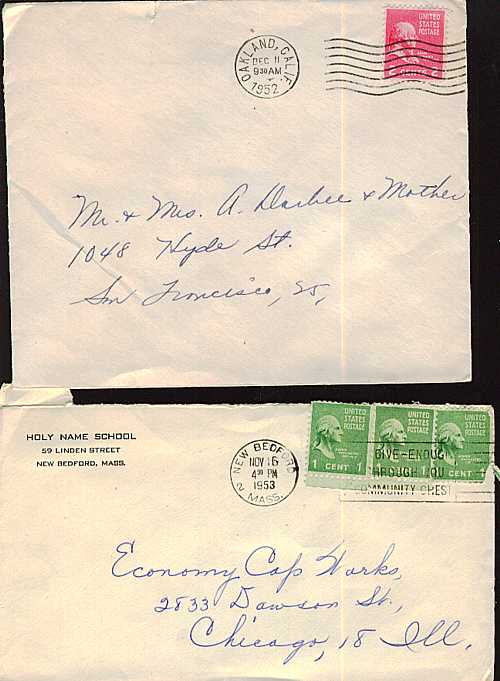 OAKLAND, CALIF.
DEC 11
9 30 AM
1952
UNITED STATES POSTAGE
CENTS
Mr. & Mrs. A. Darbee & Mother
1048 Hyde St.
San Francisco, 25,
HOLY NAME SCHOOL
59 LINDEN STREET
NEW BEDFORD, MASS.
NEW BEDFORD
NOV 16
4 30 PM
1953
2 MASS.
UNITED STATES POSTAGE
1 CENT 1
UNITED STATES POSTAGE
UNITED STATES POSTAGE
GIVE-ENOUGH
THROUGH YOU
COMMUNITY CHEST
Economy Cap Works,
2833 Dawson St.,
Chicago, 18 Ill.